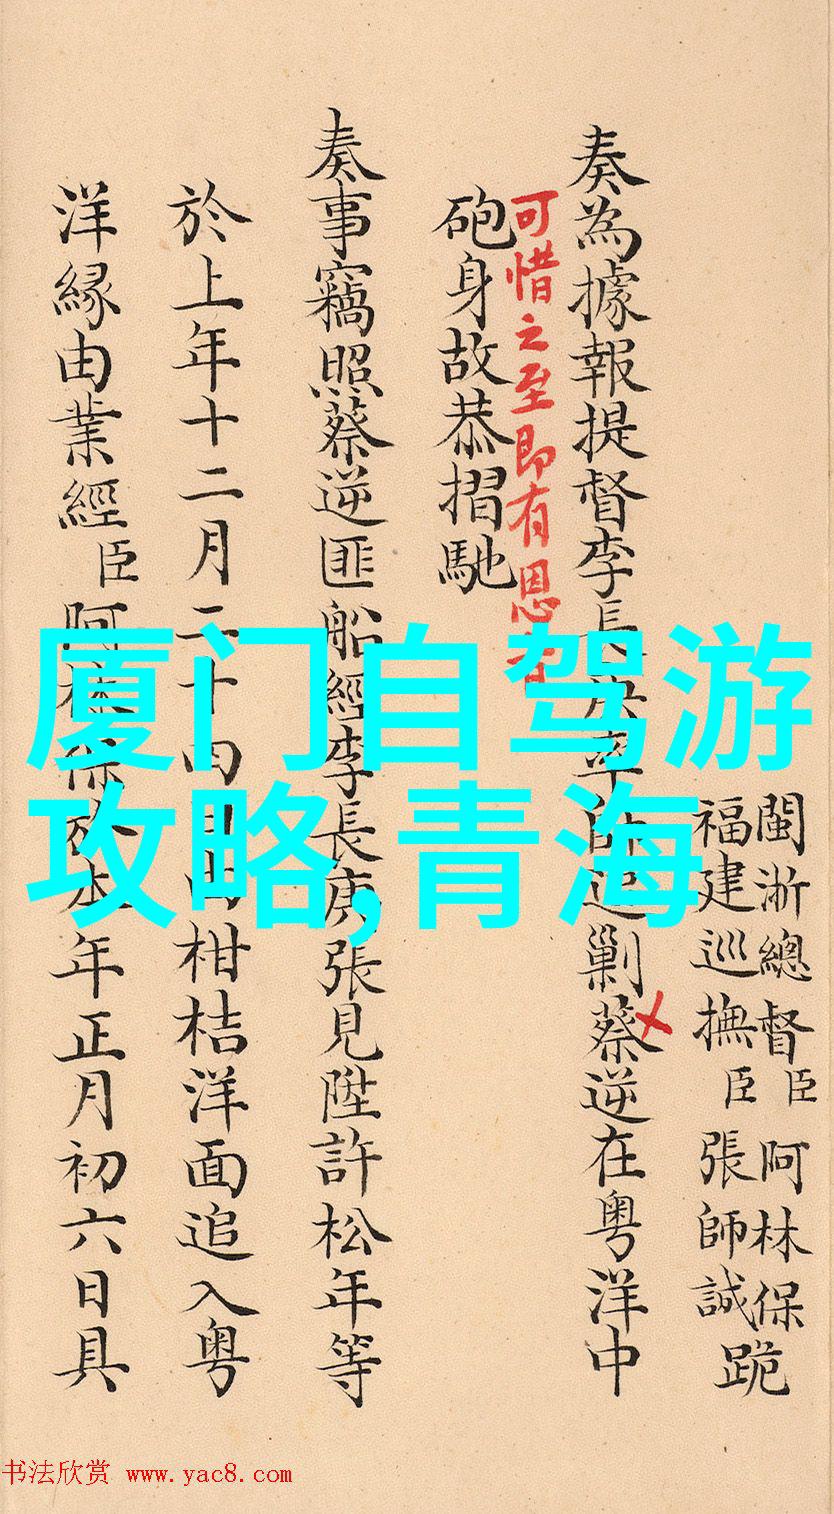 閩浙總督臣阿林保
福建巡撫臣張師誠
跪
奏為據報提督李長庚率師追剿蔡逆在粤洋中
可惜之至即有恩旨
砲身故恭摺馳
奏事竊照蔡逆匪船經李長庚張見陞許松年等
於上年十二月二十四日由柑桔洋面追入粤
洋緣由業經臣阿林保於本年正月初六日具
厦门自驾游
攻略,青海
书法欣赏 www.yac8.com